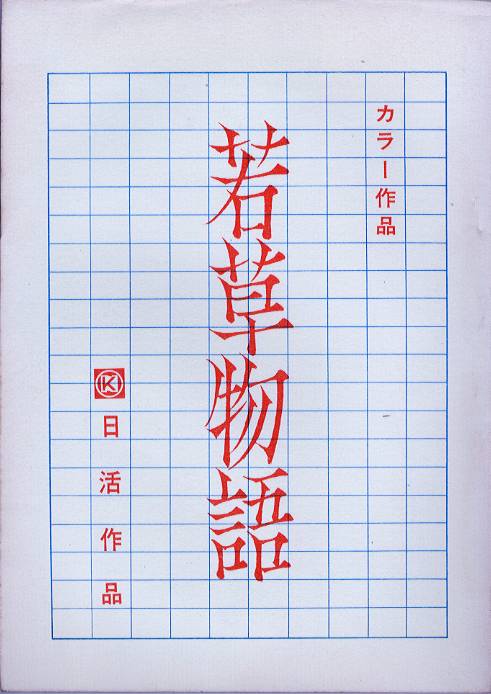 カラー作品
若草物語
K
日活作品